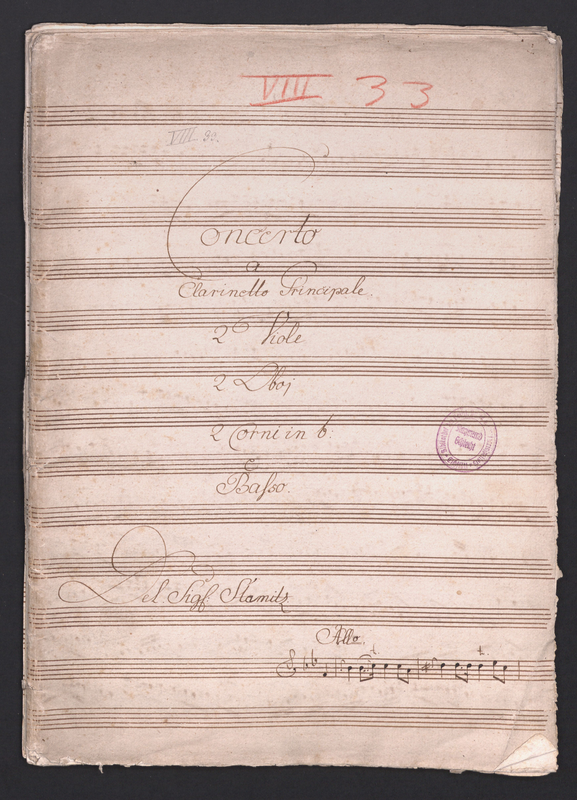 VIII 33
VIII 33.
Concerto
a
Clarinetto Principale.
2 Viole
2 Oboj
2 Corni in b.
e
Basso.
Del Sigr Stamitz
Allo.